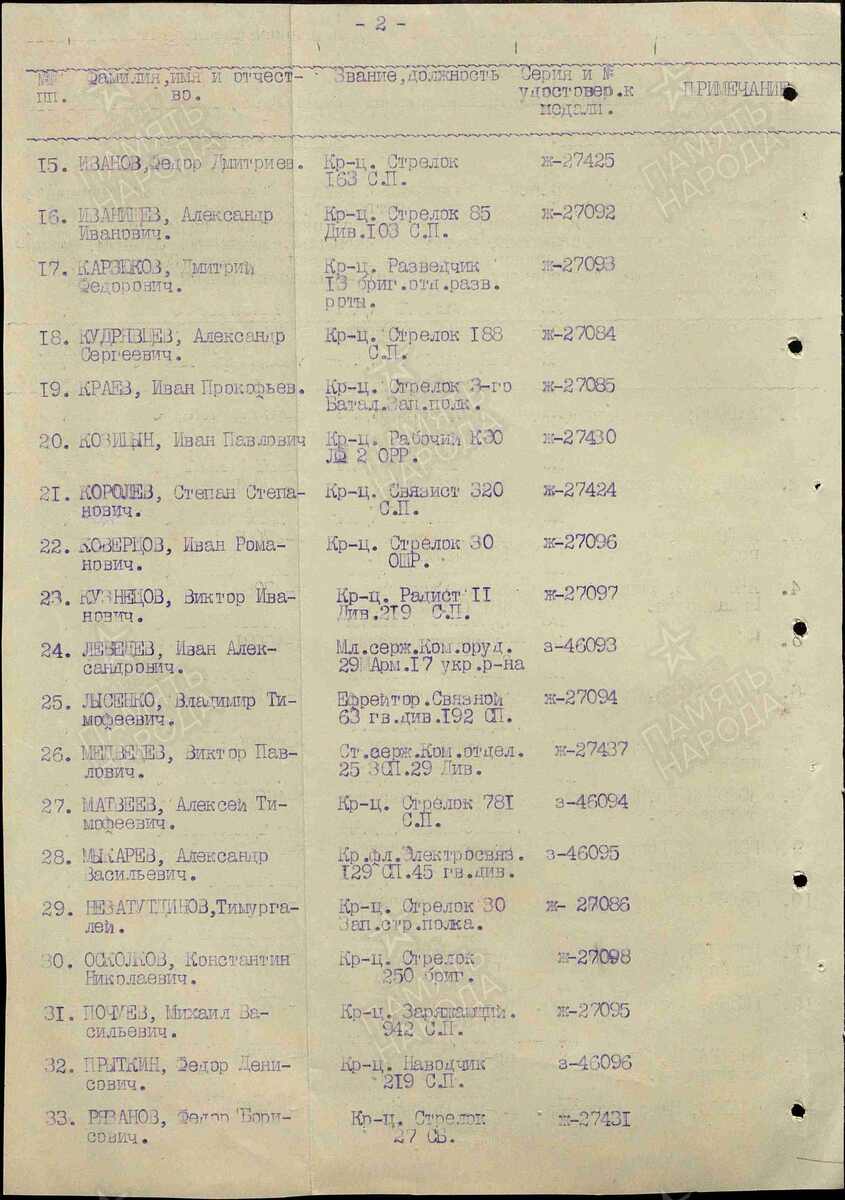 - 2 -
№№ Фамилия,имя и отчест- Звание,должность Серия и №
пп. во. удостовер.к ПРИМЕЧАНИЕ
медали.
15. ИВАНОВ,Федор Дмитриев. Кр-ц. Стрелок ж-27425
163 С.П.
16. ИВАНИЩЕВ, Александр Кр-ц. Стрелок 85 ж-27092
Иванович. Див.103 С.П.
17. КАРЗЕКОВ, Дмитрий Кр-ц. Разведчик ж-27093
Федорович. 13 бриг.отд.разв.
роты.
18. КУДРЯВЦЕВ, Александр Кр-ц. Стрелок 188 ж-27084
Сергеевич. С.П.
19. КРАЕВ, Иван Прокофьев. Кр-ц. Стрелок 3-го ж-27085
Батал.Зап.полк.
20. КОЗИЦЫН, Иван Павлович Кр-ц. Рабочий КЭО ж-27430
№ 2 ОРР.
21. КОРОЛЕВ, Степан Степа- Кр-ц. Связист 320 ж-27424
нович. С.П.
22. КОВЕРЦОВ, Иван Рома- Кр-ц. Стрелок 30 ж-27096
нович. ОШР.
23. КУЗНЕЦОВ, Виктор Ива- Кр-ц. Радист 11 ж-27097
нович. Див.219 С.П.
24. ЛЕБЕДЕВ, Иван Алек- Мл.серж.Ком.оруд. з-46093
сандрович. 29 Арм.17 укр.р-на
25. ЛЫСЕНКО, Владимир Ти- Ефрейтор.Связной ж-27094
мофеевич. 63 гв.див.192 СП.
26. МЕДВЕДЕВ, Виктор Пав- Ст.серж.Ком.отдел. ж-27437
лович. 25 ЗСП.29 Див.
27. МАТВЕЕВ, Алексей Ти- Кр-ц. Стрелок 781 з-46094
мофеевич. С.П.
28. МЫКАРЕВ, Александр Кр.фл.Электросвяз. з-46095
Васильевич. 129 СП.45 гв.див.
29. НЕЗАТУТДИНОВ,Тимурга- Кр-ц. Стрелок 30 ж- 27086
лей. Зап.стр.полка.
30. ОСКОЛКОВ, Константин Кр-ц. Стрелок ж-27098
Николаевич. 250 бриг.
31. ПОЧУЕВ, Михаил Ва- Кр-ц. Заряжающий. ж-27095
сильевич. 942 С.П.
32. ПРЫТКИН, Федор Дени- Кр-ц. Наводчик з-46096
сович. 219 С.П.
33. РЯЗАНОВ, Федор Бори- Кр-ц. Стрелок ж-27431
сович. 27 СБ.
ПАМЯТЬ
НАРОДА